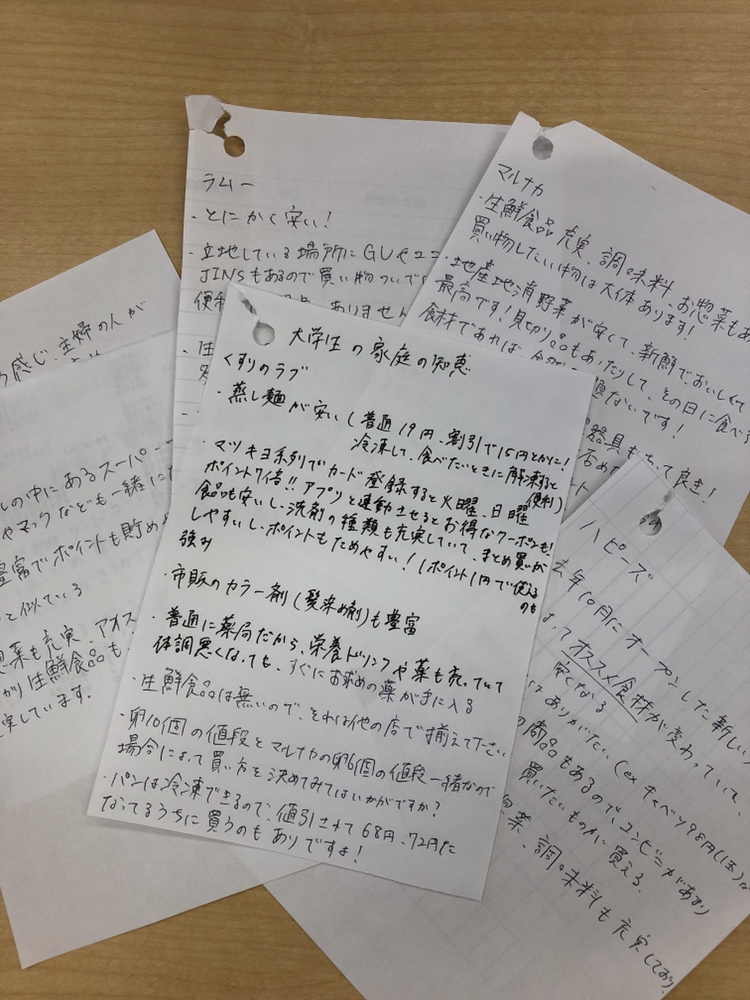 大学生の家庭の知恵
くすりのラブ
・蒸し麺が安い(普通19円、割引で15円とかに!
冷凍して、食べたいときに解凍すると
便利)
・マツキヨ系列でカード登録すると火曜、日曜
ポイント7倍!!アプリと連動させるとお得なクーポンも!
食品も安いし、洗剤の種類も充実していて、まとめ買いが
しやすいし、ポイントもためやすい!1ポイント1円で使える
のも
強み
・市販のカラー剤(髪染め剤)も豊富
・普通に薬局だから、栄養ドリンクや薬も売っていて
体調悪くなっても、すぐにお求めの薬が手に入る
・生鮮食品は無いので、それは他の店で揃えて下さい
・卵10個の値段とマルナカの卵6個の値段一緒なので
場合によって買い方を決めてみてはいかがですか?
・パンは冷凍できるので、値引されて68円、72円に
なってるうちに買うのもありですよ!
ラムー
・とにかく安い!
・立地している場所にGUやユニ
JINSもあるので買い物ついで
便利
ありません
マルナカ
・生鮮食品充実、調味料、お惣菜もあ
買い物したい物は大体あります!
・地産地消野菜が安くて、新鮮で、おいしくて
最高です!見切り品もあったりして、その日に食べ
食材であれば
題ないです!
器具もあって良き!
ハピーズ
去年10月にオープンした新しい
よってオススメ食材が変わっていて、
安くなる
はありがたい(ex キャベツ98円(1玉)
の商品もあるので、コンビニがあまり
買いたいものが買える。
菜、調味料も充実しており、
感じ、主婦の人が
の中にあるスーパー
やマックなども一緒に
豊富でポイントも貯め
と似ている
惣菜も充実、アオス
がり生鮮食品も
実しています。